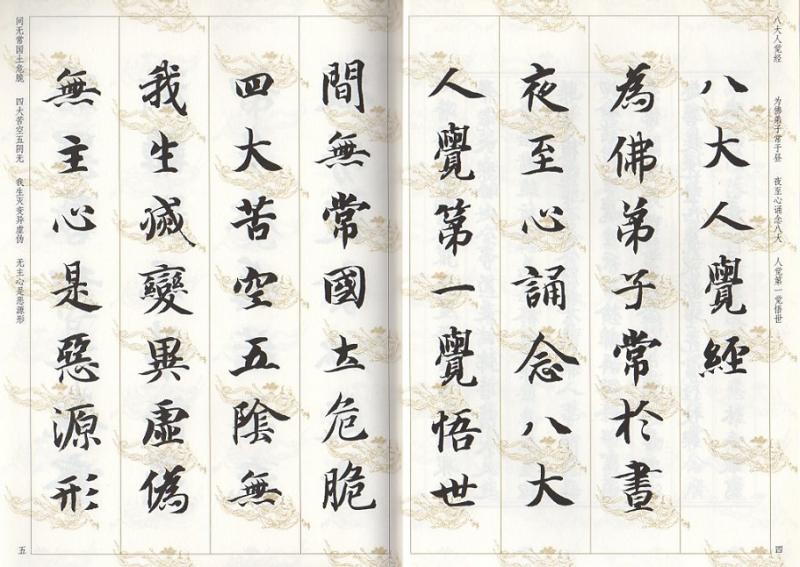 八大人觉经 为佛弟子常于昼 夜至心诵念八大 人觉第一觉悟世
四
八大人覺經
為佛弟子常於晝
夜至心誦念八大
人覺第一覺悟世
間無常國土危脆
四大苦空五陰無
我生滅變異虛偽
無主心是惡源形
间无常国土危脆 四大苦空五阴无 我生灭变异虚伪 无主心是恶源形
五